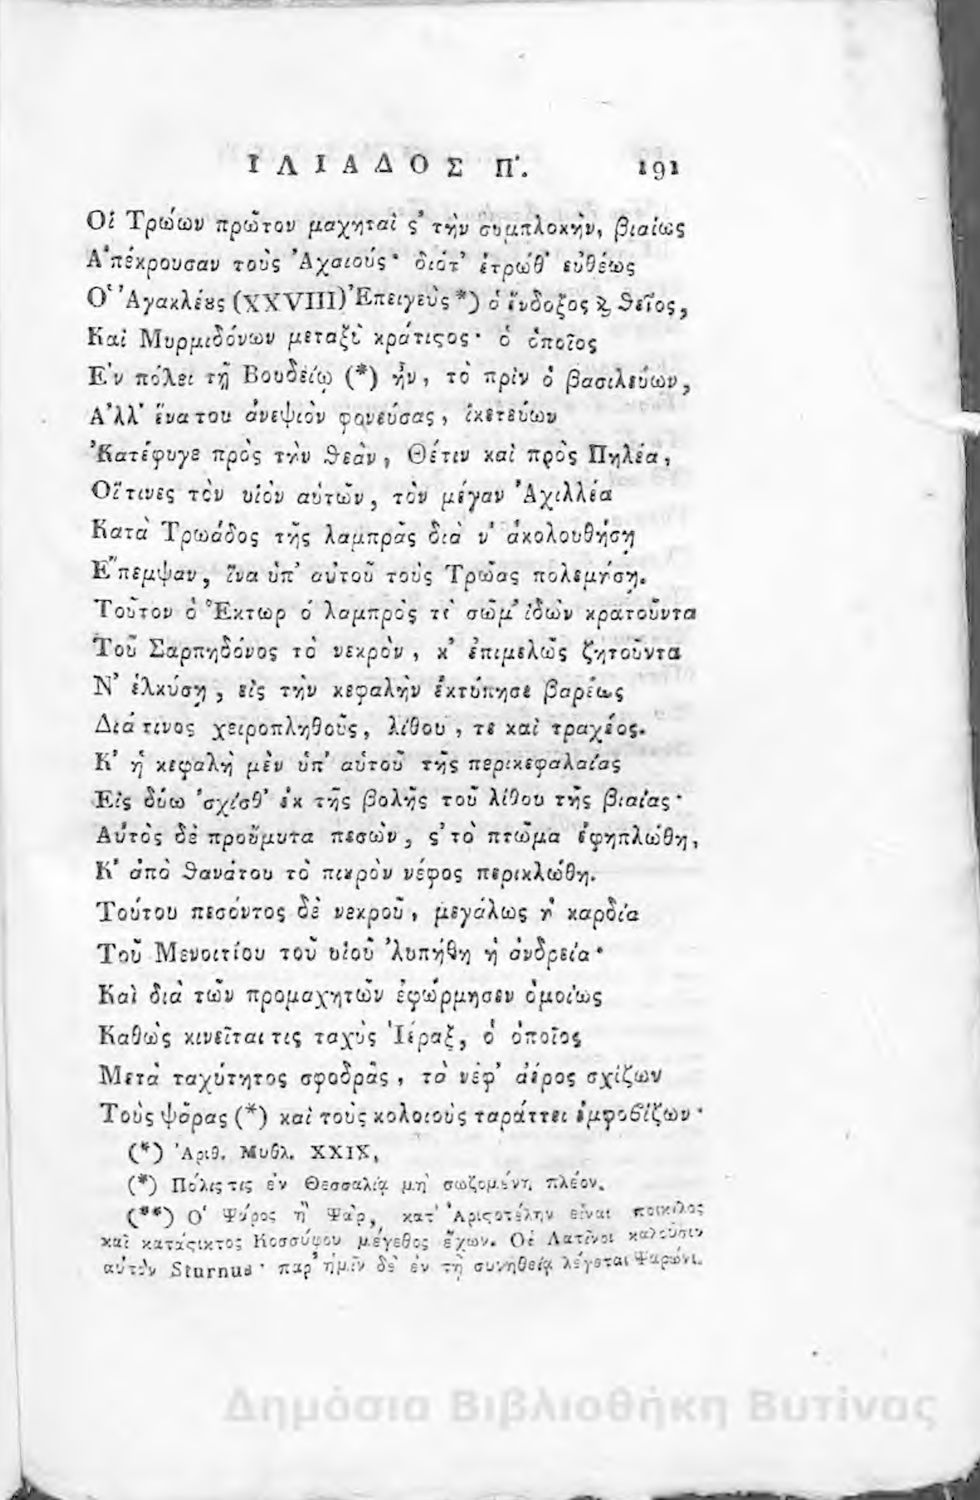 ΙΛΙΑΔΟΣ Π'. 191
Οἱ Τρώων πρῶτον μαχηταὶ ς' τὴν συμπλοκὴν, βιαίως
Α'πέκρουσαν τοὺς Ἀχαιούς· διότ' ἐτρώθ' εὐθέως
Ο' Ἀγακλέȣς (XXVIII) Ἐπειγεὺς *) ὁ ἔνδοξος ϗ ϑεῖος,
Καὶ Μυρμιδόνων μεταξὺ κράτιςος· ὁ ὁποῖος
Ε'ν πόλει τῇ Βουδείῳ (*) ἦν, τὸ πρὶν ὁ βασιλεύων,
Α'λλ' ἕνα του ἀνεψιὸν φονεύσας, ἱκετεύων
Ἐκατέφυγε πρὸς τὴν ϑεὰν, Θέτιν καὶ πρὸς Πηλέα,
Οἵτινες τὸν υἱὸν αὐτῶν, τὸν μέγαν Ἀχιλλέα
Κατὰ Τρωάδος τῆς λαμπρᾶς διὰ ν' ἀκολουθήσῃ
Ε"πεμψαν, ἵνα ὑπ' αὐτοῦ τοὺς Τρῶας πολεμήσῃ.
Τοῦτον ὁ Ἕκτωρ ὁ λαμπρὸς τὸ σῶμ' ἰδὼν κρατοῦντα
Τοῦ Σαρπηδόνος τὸ νεκρὸν, κ' ἐπιμελῶς ζητοῦντα
Ν' ἑλκύσῃ, εἰς τὴν κεφαλὴν ἐκτύπησε βαρέως
Διά τινος χειροπληθοῦς, λίθου, τε καὶ τραχέος.
Κ' ἡ κεφαλὴ μὲν ὑπ' αὐτοῦ τῆς περικεφαλαίας
Εἰς δύω 'σχίσθ' ἐκ τῆς βολῆς τοῦ λίθου τῆς βιαίας·
Αὐτὸς δὲ προὔμυτα πεσὼν, ς'τὸ πτῶμα ἐφηπλώθη,
Κ' ἀπὸ ϑανάτου τὸ πικρὸν νέφος περικλώθη.
Τούτου πεσόντος δὲ νεκροῦ, μεγάλως ἡ καρδία
Τοῦ Μενοιτίου τοῦ υἱοῦ 'λυπήθη ἡ ἀνδρεία·
Καὶ διὰ τῶν προμαχητῶν ἐφώρμησεν ὁμοίως
Καθὼς κινεῖται τις ταχὺς Ἱέραξ, ὁ ὁποῖος
Μετὰ ταχύτητος σφοδρᾶς, τὰ νέφ' ἀέρος σχίζων
Τοὺς ψάρας (*) καὶ τοὺς κολοιοὺς ταράττει ἐμφοβίζων·
(*) Ἀριθ. Μυθλ. XXIX,
(*) Πόλις τις ἐν Θεσσαλίᾳ μὴ σωζομένη πλέον.
(**) Ο' Ψάρος ἢ Ψὰρ, κατ' Ἀριςοτέλην εἶναι ποικίλος
καὶ κατάςικτος Κοσσύφου μέγεθος ἔχων. Οἱ Λατῖνοι καλοῦσιν
αὐτὸν Sturnus· παρ' ἡμῖν δὲ ἐν τῇ συνηθείᾳ λέγεται Ψαρώνι.
Δημόσια Βιβλιοθήκη Βυτίνας